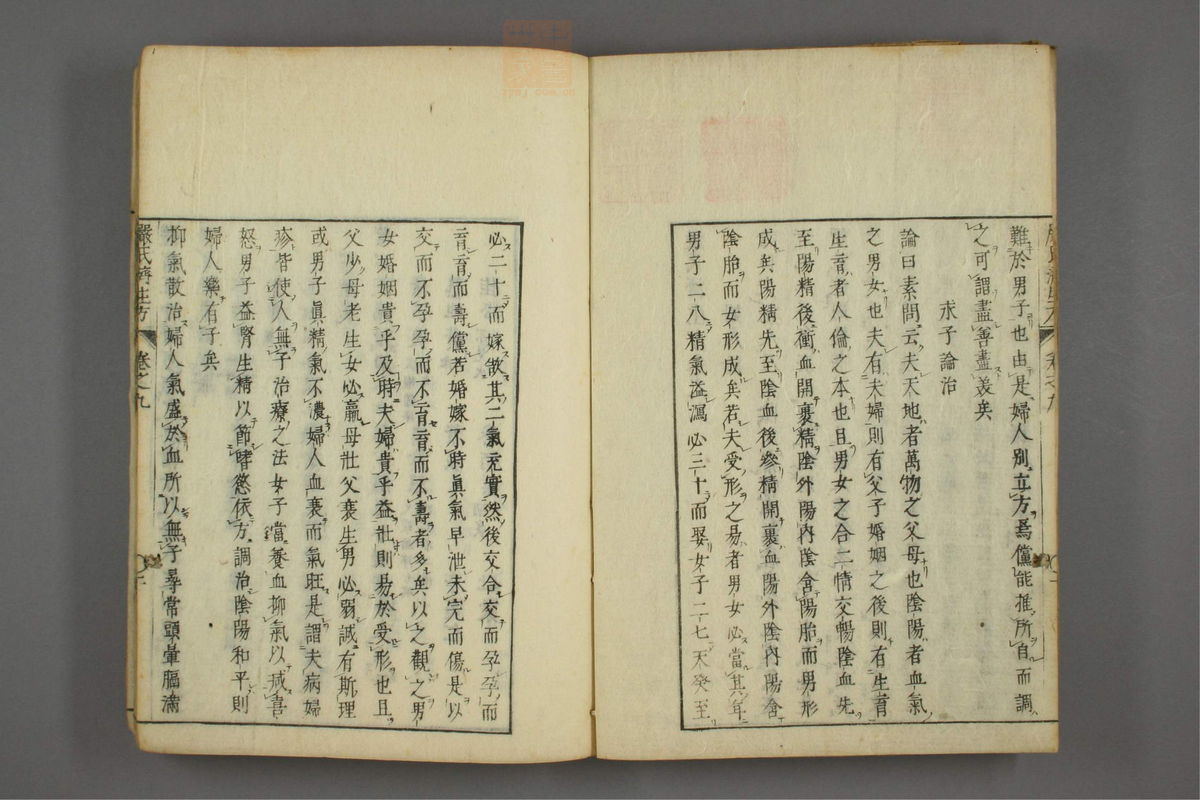 難於男子也由是婦人別立方焉儻能推所自而調
之可謂盡善盡美矣
求子論治
論曰素問云夫天地者萬物之父母也陰陽者血氣
之男女也夫有夫婦則有父子婚姻之後則有生育
生育者人倫之本也且男女之合二情交暢陰血先
至陽精後衝血開裹精陰外陽內陰含陽胎而男形
成矣陽精先至陰血後參精開裹血陽外陰內陽含
陰胎而女形成矣若夫受形之易者男女必當其年
男子二八精氣溢瀉必三十而娶女子二七天癸至
必二十而嫁欲其二氣充實然後交合交而孕孕而
育育而壽儻若婚嫁不時眞氣早泄未完而傷是以
交而不孕孕而不育育而不壽者多矣以之觀之男
女婚姻貴乎及時夫婦貴乎益壯則易於受形也且
父少母老生女必羸母壯父衰生男必弱誠有斯理
或男子眞精氣不濃婦人血衰而氣旺是謂夫病婦
疹皆使人無子治療之法女子當養血抑氣以減喜
怒男子益腎生精以節嗜慾依方調治陰陽和平則
婦人樂有子矣
抑氣散治婦人氣盛於血所以無子尋常頭暈膈滿
嚴氏濟生方
卷之九
二